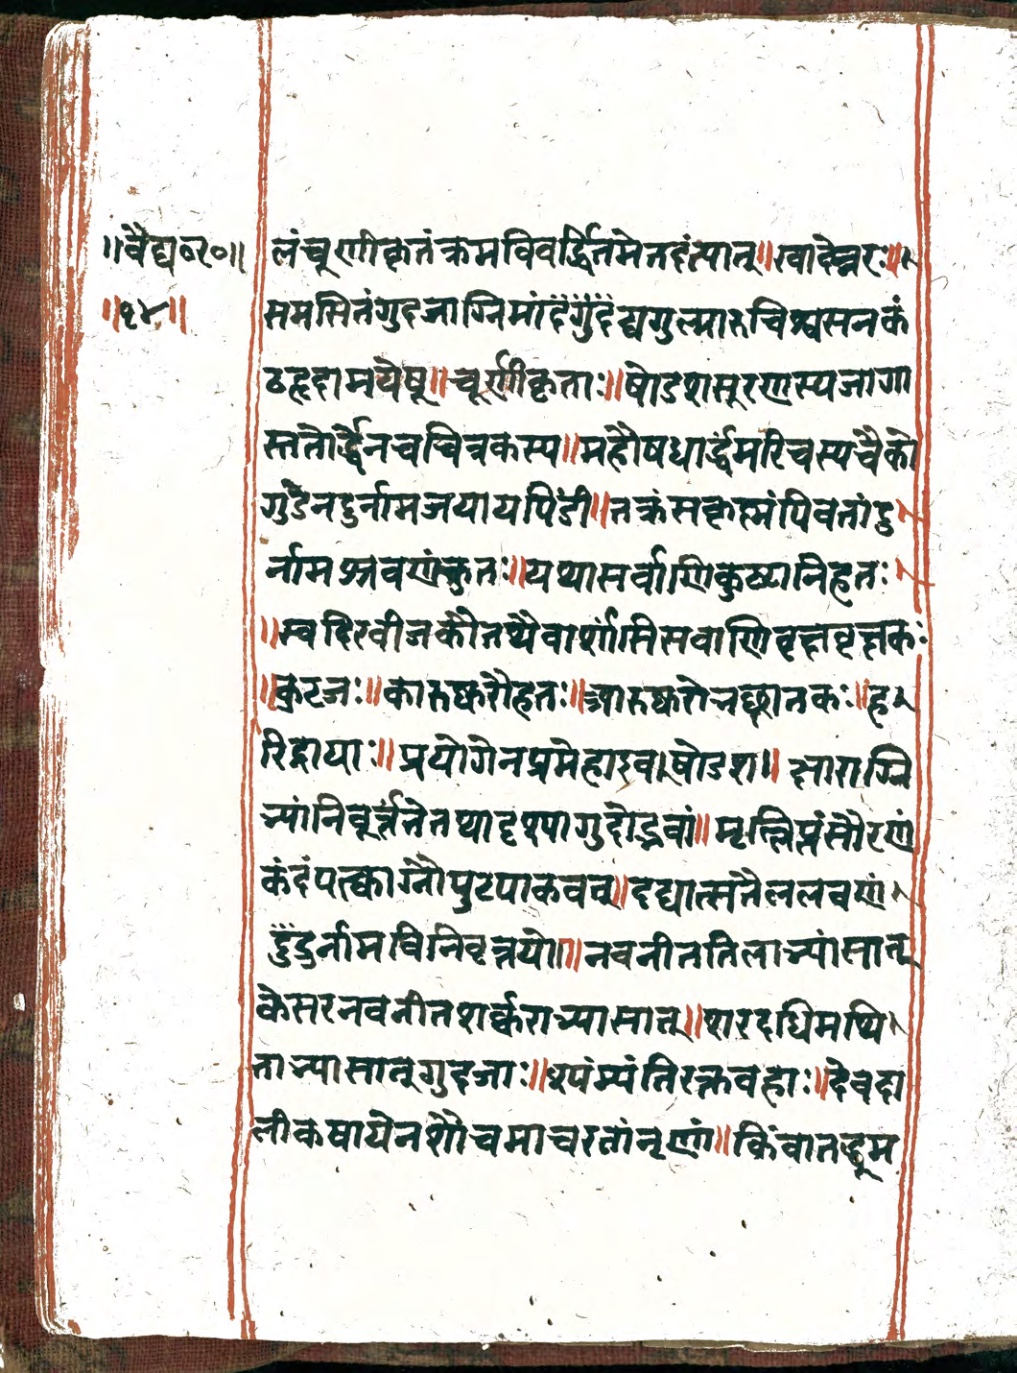 ॥वैद्यर०॥
॥१४॥
लंचूर्णीकृतंक्रमविवर्द्धितमेतदंत्यात्॥खादेन्नरः॥
समसितंगुदजाग्निमांदैर्गुदैद्यगुल्मारुचिश्वसनकं
ठहृदामयेषू॥चूर्णीकृताः॥षोडशसूरणस्यजागा
स्ततोर्द्धेनचचित्रकस्य॥महौषधार्द्धंमरिचस्यचैको
गुडेनदुर्नामजयायपिंडी॥तक्रंसकृत्स्नंपिवतांदु
र्नामश्रवणंकुतः॥यथासर्वाणिकुष्टानिहतः
॥स्वदिरवीजकौतथैवार्शांसिसवाणिवृक्षवृक्षकः
॥कुटजः॥कारुष्करौहतः॥आरुष्करोभल्लातकः॥ह
रिद्रायाः॥प्रयोगेनप्रमेहाइव।षोडश॥क्षाराग्नि
भ्यांनिवूर्त्तंतेतथादृश्पागुदोद्भवां॥मृल्लिप्तंसौरणं
कंदंपत्क्वाग्नौपुटपाकवत्॥दद्यात्सतैललवणं
दुर्नामविनिवृत्तयो॥नवनीततिलाभ्यांसात्
केसरनवनीतशर्कराभ्यासात्॥शरदधिमथि
ताभ्यासात्गुदजाः॥श्पंम्यंतिरक्तवहाः॥देवदा
लीकषायेनशौचमाचरतांनृणां॥किंवातद्धूम